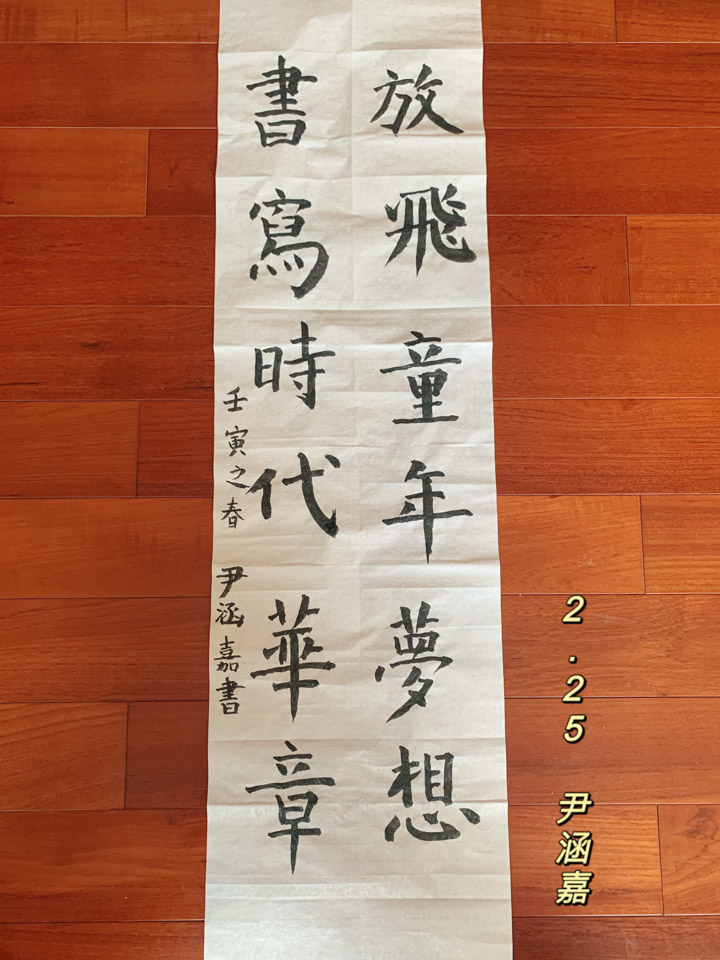 放飛童年夢想
書寫時代華章
壬寅之春 尹涵嘉書
2.25 尹涵嘉